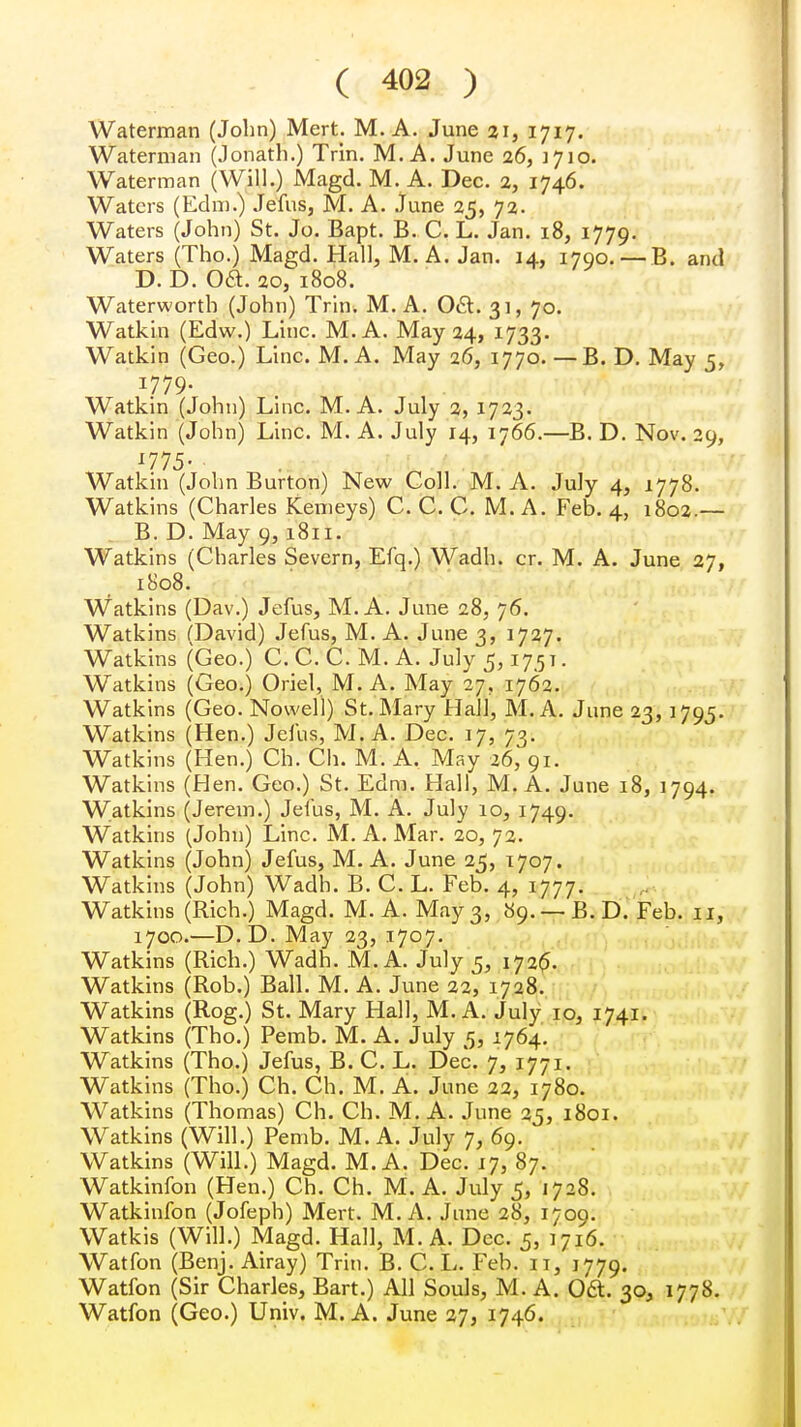 ( 402 )
Waterman (John) Mert. M. A. June 21, 1717.
Waterman (Jonath.) Trin. M. A. June 26, 1710.
Waterman (Will.) Magd. M. A. Dec. 2, 1746.
Waters (Edm.) Jeſus, M. A. June 25, 72.
Waters (John) St. Jo. Bapt. B. C. L. Jan. 18, 1779.
Waters (Tho.) Magd. Hall, M. A. Jan. 14, 1790. — B. and
D. D. Oct. 20, 1808.
Waterworth (John) Trin. M. A. Oct. 31, 70.
Watkin (Edw.) Linc. M. A. May 24, 1733.
Watkin (Geo.) Linc. M. A. May 26, 1770. — B. D. May 5,
1779.
Watkin (John) Linc. M. A. July 2, 1723.
Watkin (John) Linc. M. A. July 14, 1766.—B. D. Nov. 29,
1775.
Watkin (John Burton) New Coll. M. A. July 4, 1778.
Watkins (Charles Kemeys) C. C. C. M. A. Feb. 4, 1802.—
B. D. May 9, 1811.
Watkins (Charles Severn, Eſq.) Wadh. cr. M. A. June 27,
1808.
Watkins (Dav.) Jeſus, M. A. June 28, 76.
Watkins (David) Jeſus, M. A. June 3, 1727.
Watkins (Geo.) C. C. C. M. A. July 5, 1751.
Watkins (Geo.) Oriel, M. A. May 27, 1762.
Watkins (Geo. Nowell) St. Mary Hall, M. A. June 23, 1795.
Watkins (Hen.) Jeſus, M. A. Dec. 17, 73.
Watkins (Hen.) Ch. Ch. M. A. May 26, 91.
Watkins (Hen. Geo.) St. Edm. Hall, M. A. June 18, 1794.
Watkins (Jerem.) Jeſus, M. A. July 10, 1749.
Watkins (John) Linc. M. A. Mar. 20, 72.
Watkins (John) Jeſus, M. A. June 25, 1707.
Watkins (John) Wadh. B. C. L. Feb. 4, 1777.
Watkins (Rich.) Magd. M. A. May 3, 89. — B. D. Feb. 11,
1700.—D. D. May 23, 1707.
Watkins (Rich.) Wadh. M. A. July 5, 1726.
Watkins (Rob.) Ball. M. A. June 22, 1728.
Watkins (Rog.) St. Mary Hall, M. A. July 10, 1741.
Watkins (Tho.) Pemb. M. A. July 5, 1764.
Watkins (Tho.) Jeſus, B. C. L. Dec. 7, 1771.
Watkins (Tho.) Ch. Ch. M. A. June 22, 1780.
Watkins (Thomas) Ch. Ch. M. A. June 25, 1801.
Watkins (Will.) Pemb. M. A. July 7, 69.
Watkins (Will.) Magd. M. A. Dec. 17, 87.
Watkinſon (Hen.) Ch. Ch. M. A. July 5, 1728.
Watkinſon (Joſeph) Mert. M. A. June 28, 1709.
Watkis (Will.) Magd. Hall, M. A. Dec. 5, 1716.
Watſon (Benj. Airay) Trin. B. C. L. Feb. 11, 1779.
Watſon (Sir Charles, Bart.) All Souls, M. A. Oct. 30, 1778.
Watſon (Geo.) Univ. M. A. June 27, 1746.